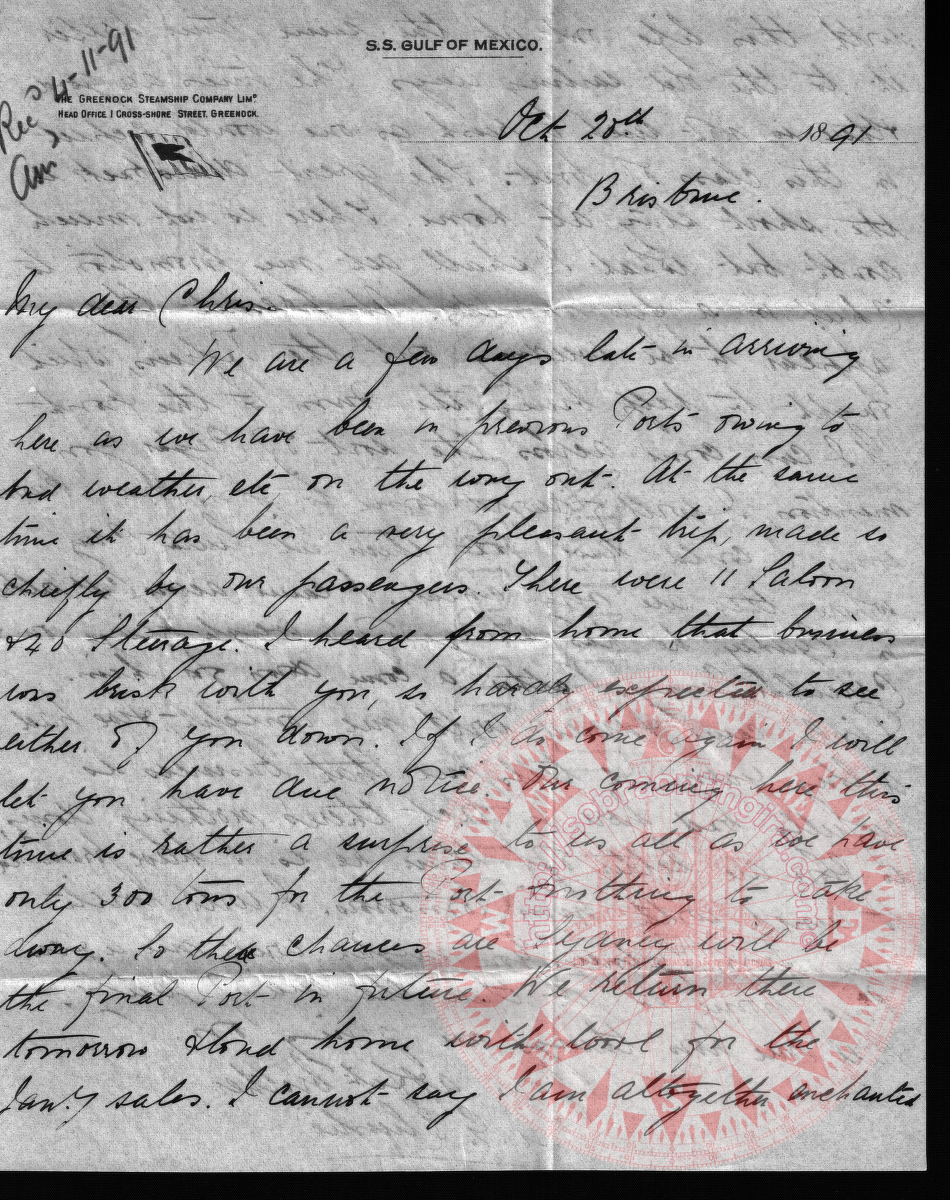 S.S. GULF OF MEXICO.
Rec'd 4-11-91
THE GREENOCK STEAMSHIP COMPANY LIMD.
HEAD OFFICE 1 CROSS-SHORE STREET, GREENOCK.
Ans
Oct 20th 1891
Brisbane.
My dear Chris
We are a few days late in arriving
here as we have been in previous Ports owing to
bad weather, etc on the way out. At the same
time it has been a very pleasant trip, made so
chiefly by our passengers. There were 11 Saloon
& 40 Steerage. I heard from home that business
was brisk with you, so hardly expected to see
either of you down. If I do come again I will
let you have due notice. Our coming here this
time is rather a surprise to us all as we have
only 300 tons for the Port & nothing to take
away. So the chances are Sydney will be
the final Port in future. We return there
tomorrow & load home with wool for the
Jany sales. I cannot say I am altogether enchanted